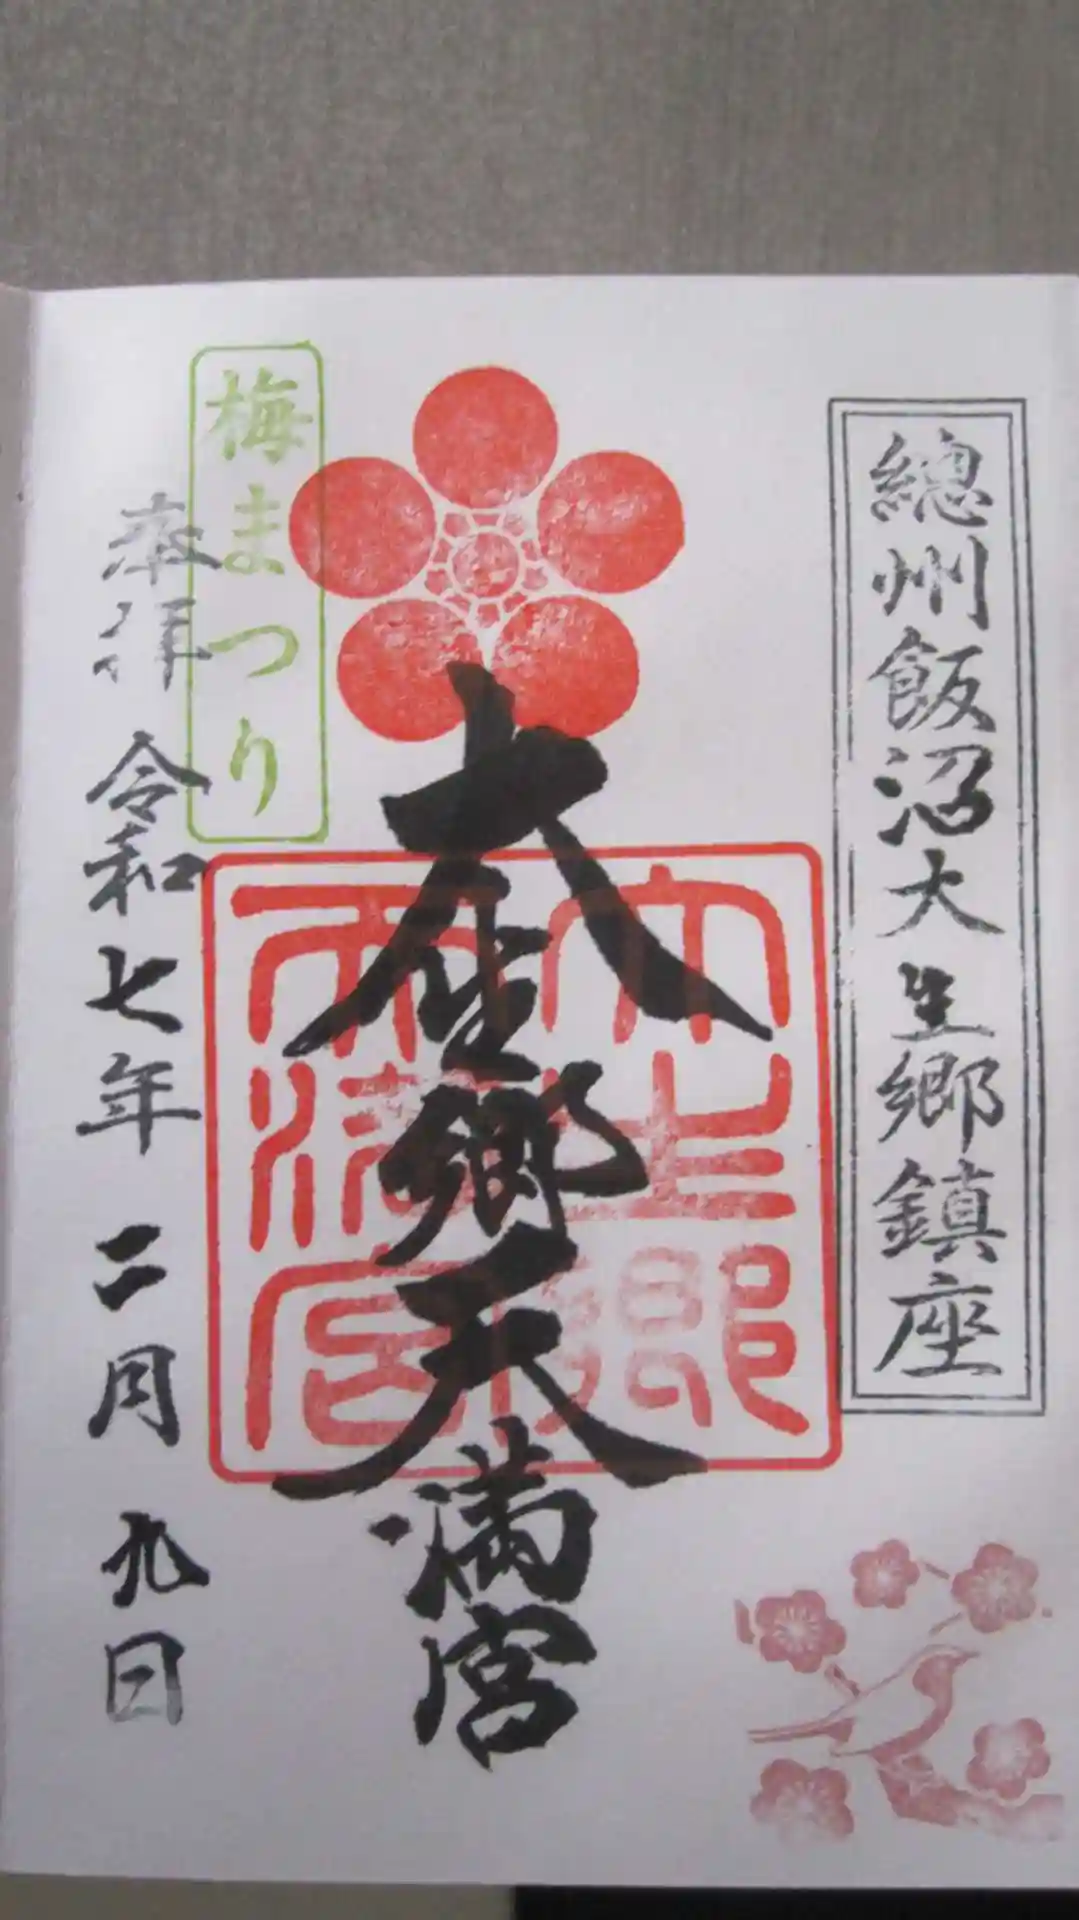 總州飯沼大生郷鎮座
大生郷天満宮
大生郷
天満宮
梅まつり
奉拝 令和七年二月九日